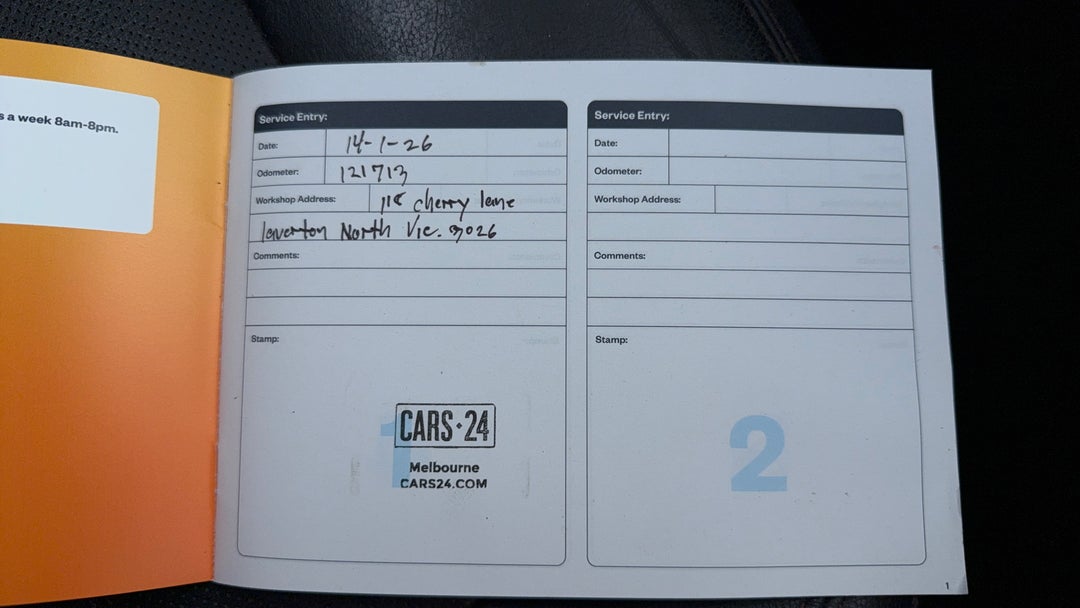 s a week 8am-8pm.
Service Entry:
Date: 14-1-26
Odometer: 121713
Workshop Address: cherry lane
laverton North Vic. 3026
Comments:
Stamp:
1
CARS·24
Melbourne
CARS24.COM
Service Entry:
Date:
Odometer:
Workshop Address:
Comments:
Stamp:
2
1